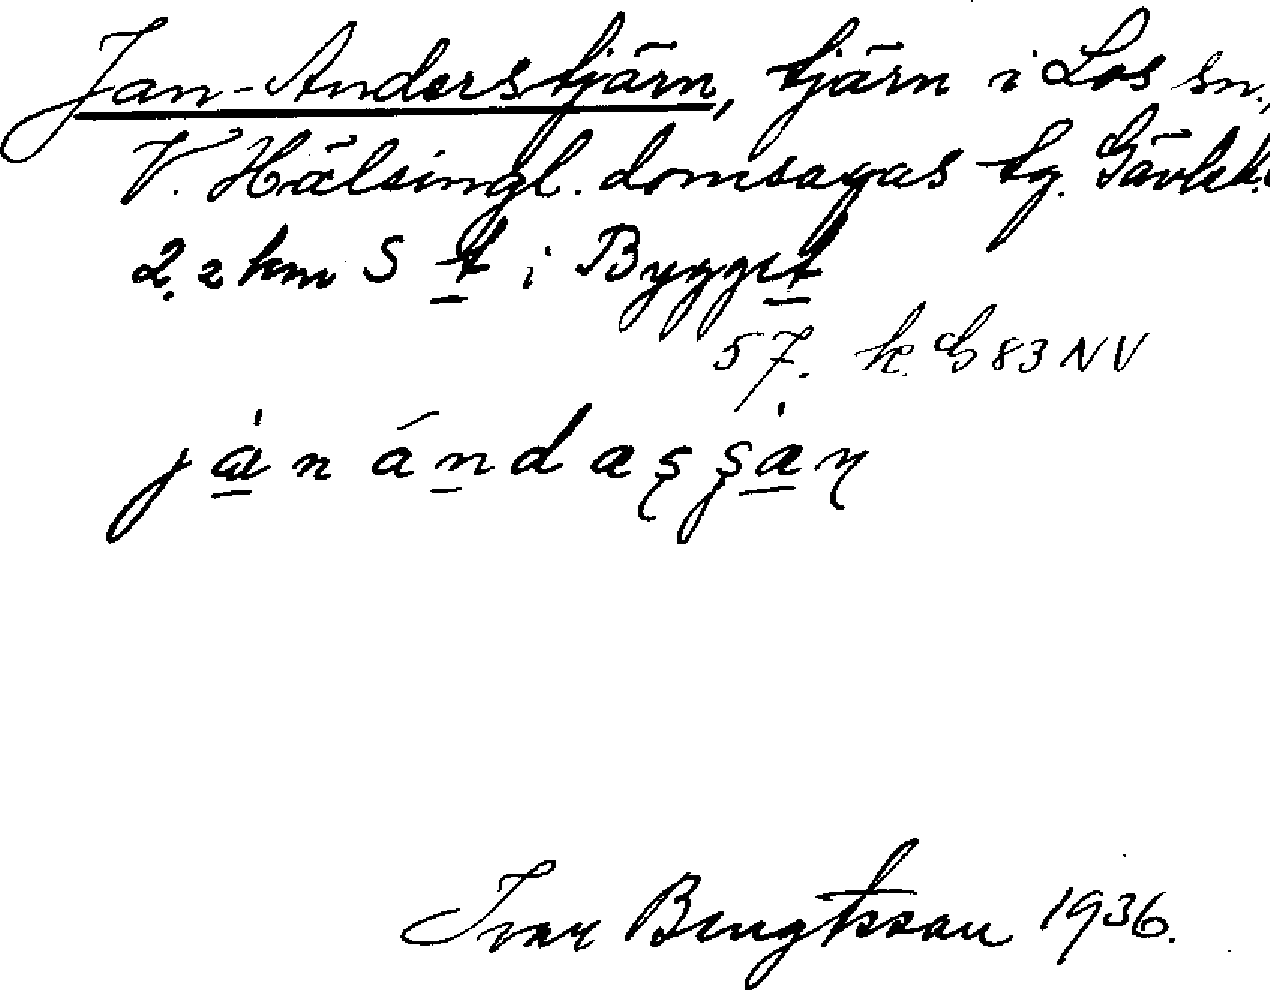 Jan-Anderstjärn, tjärn i Los sn.,
V. Hälsingl. domsagas tg. Gävleb.
2,2 km S t i Bygget
57. k. G 83 NV
jàn ándaşşàη
Ivar Bengtsson 1936.